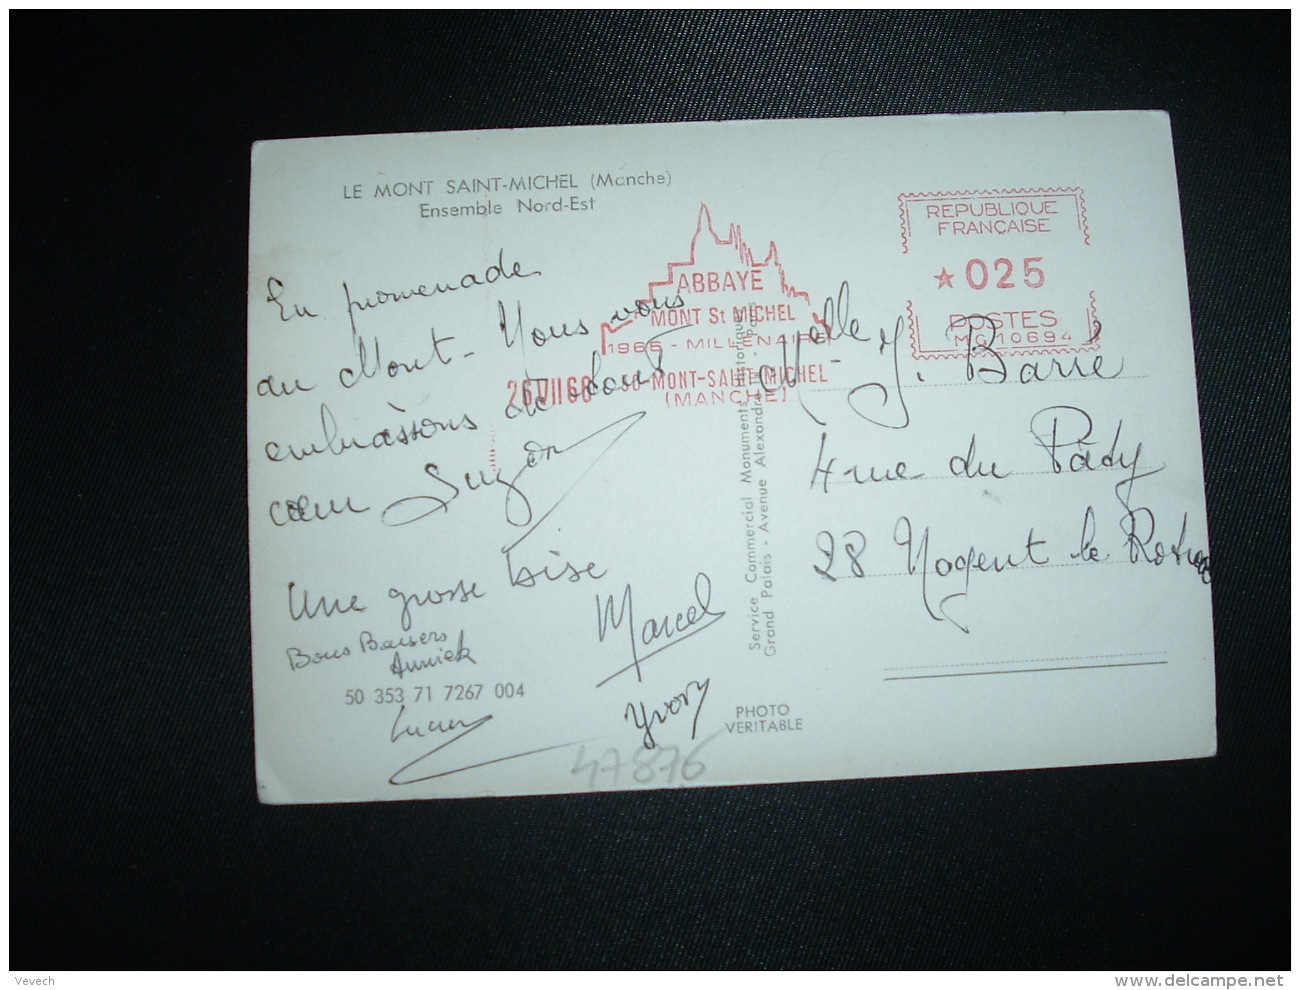 LE MONT SAINT-MICHEL (Manche)
Ensemble Nord-Est
En promenade
au Mont - Nous vous
embrassons de tout
cœur Suzon
Une grosse bise
Marcel
Bons Baisers
Annick
50 353 71 7267 004
Lucien
Yvon
47876
PHOTO
VERITABLE
Service Commercial Monuments Historiques
Grand Palais - Avenue Alexandre III - Paris
ABBAYE
MONT St MICHEL
1966 - MILLENAIRE
26 VII 68 50-MONT-SAINT-MICHEL
(MANCHE)
REPUBLIQUE
FRANÇAISE
★ 025
POSTES
MG 10694
Melle J. Barré
4 rue du Pâty
28 Nogent le Rotrou
Vevech
www.delcampe.net